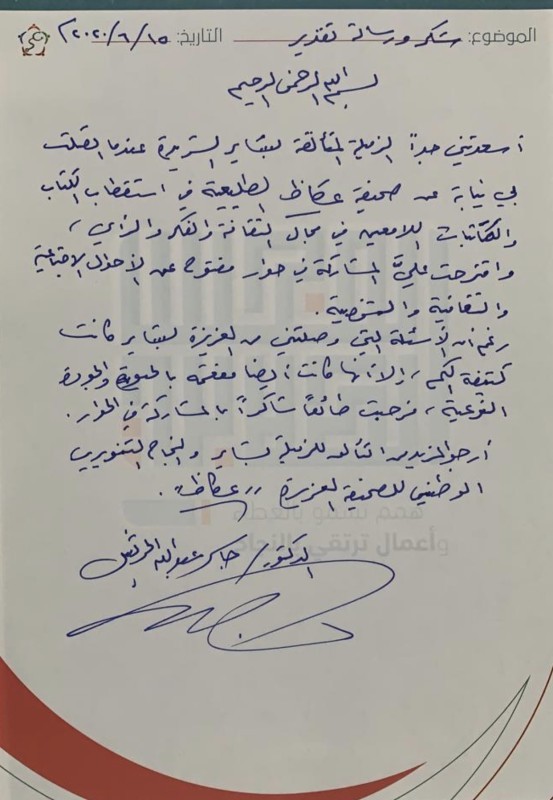 الموضوع: شكر ورسالة تقدير التاريخ: ٢٠٢٠/٦/١٥م
بسم الله الرحمن الرحيم
أسعدتني جداً الزميلة المتألقة بشاير الشريدة عندما اتصلت
بي نيابة عن صحيفة عكاظ الطليعية في استقطاب الكتاب
والكاتبات اللامعين في مجال الثقافة والفكر والرأي،
واقترحت عليَّ المشاركة في حوار مفتوح عن الأحوال الاجتماعية
والثقافية والشخصية.
رغم أن الأسئلة التي وصلتني من العزيزة بشاير كانت
كثيفة الكم، إلا أنها كانت أيضا مفعمة بالحيوية والجودة
النوعية، فرحبت طائعاً شاكراً بالمشاركة في الحوار.
أرجو المزيد من التألق للزميلة بشاير والنجاح التنويري
الوطني للصحيفة العزيزة ,,عكاظ,,.
همم تسمو بالعطاء
وأعمال ترتقي بالنجاح
الدكتور/ جاسر عبدالله الحربش